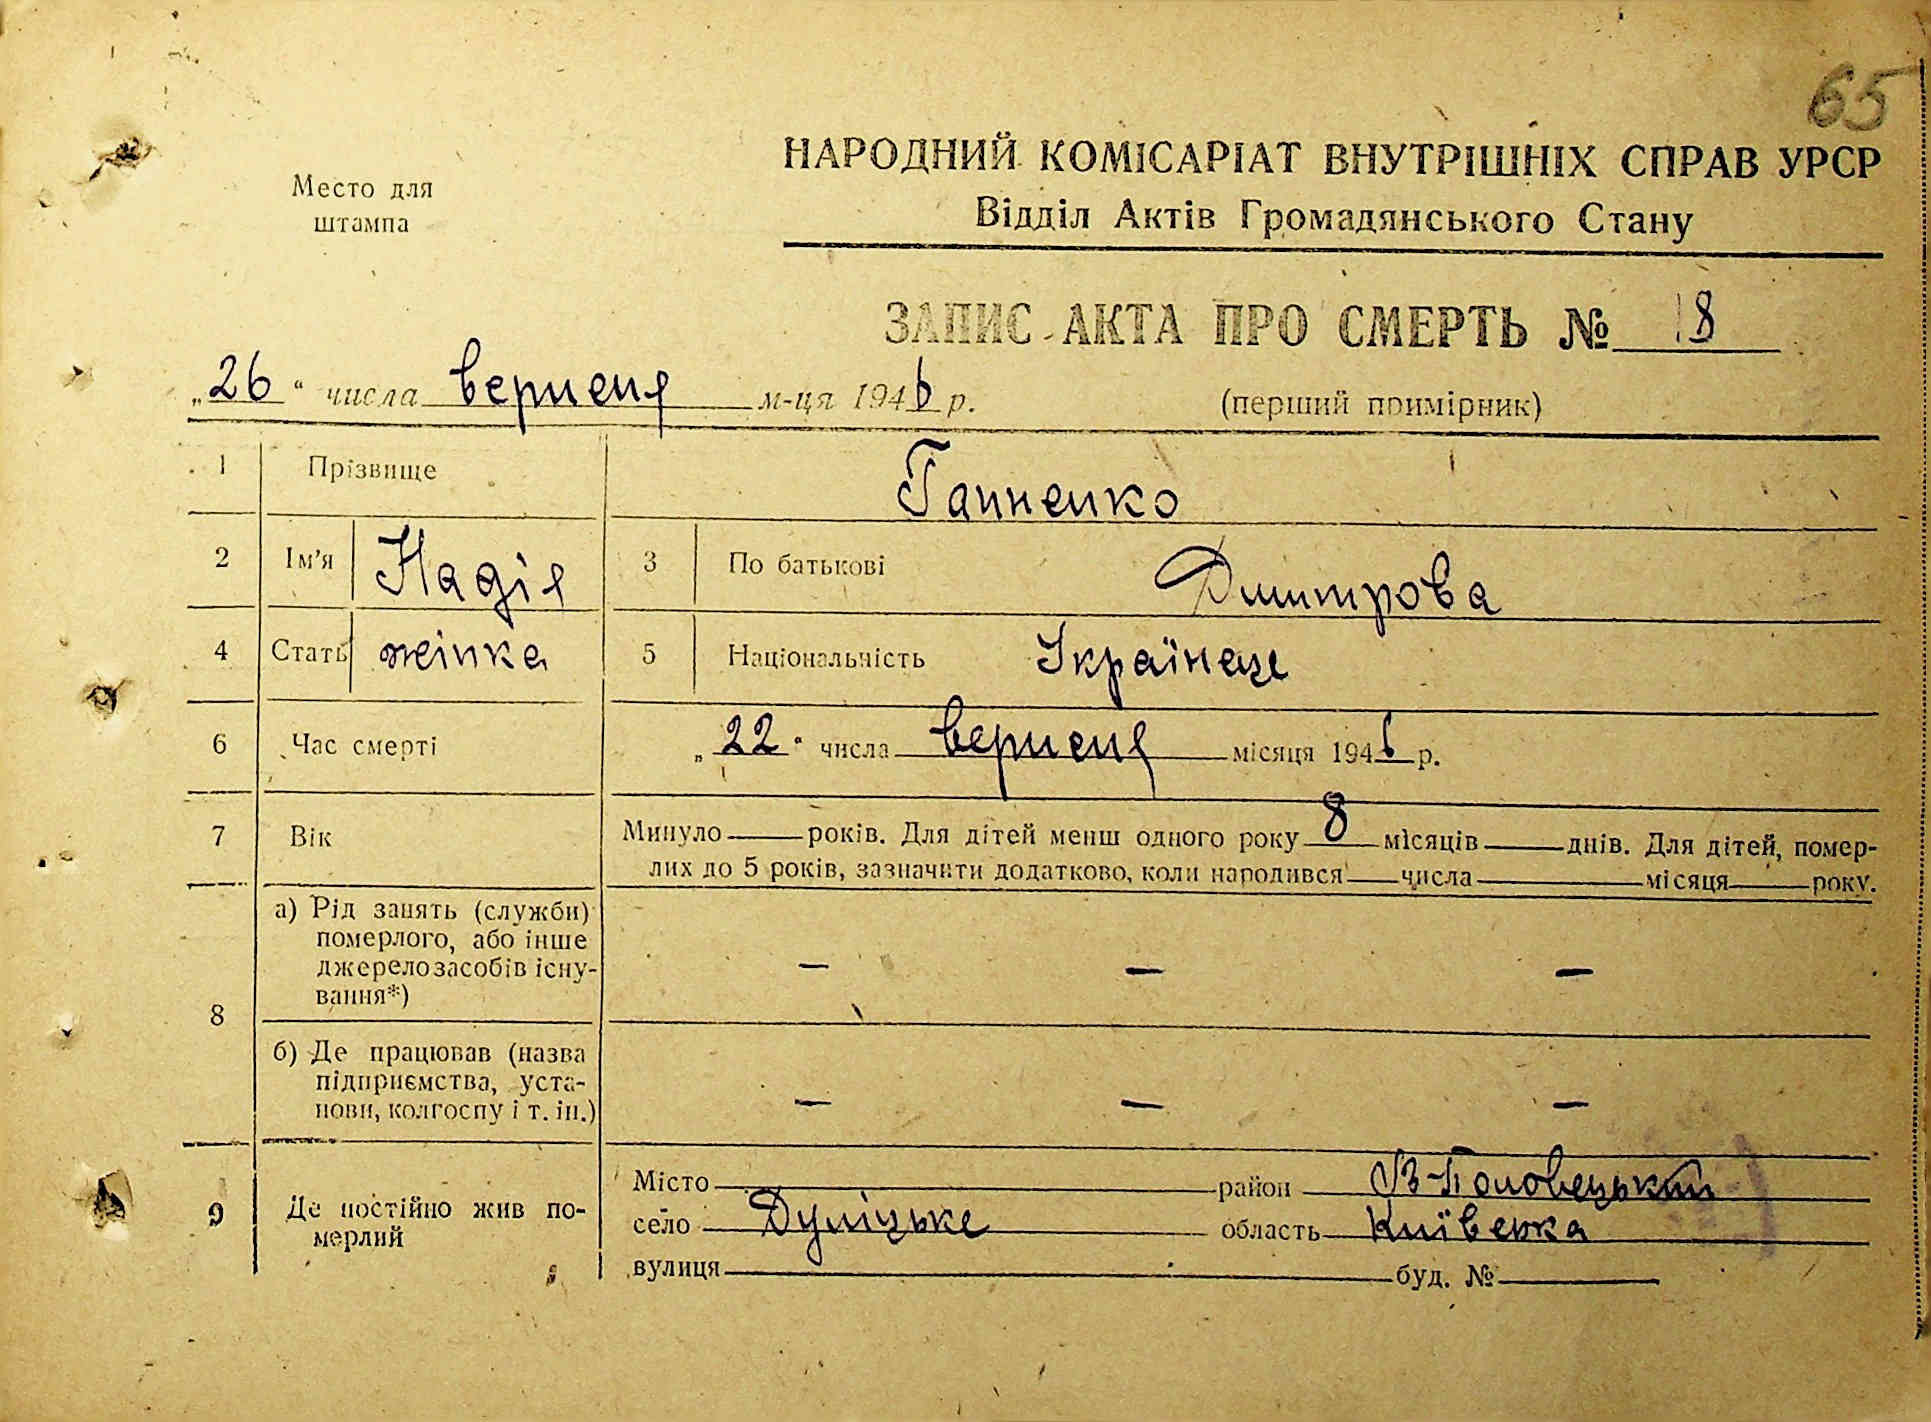 65
НАРОДНИЙ КОМІСАРІАТ ВНУТРІШНІХ СПРАВ УРСР
Место для
штампа
Відділ Актів Громадянського Стану
ЗАПИС АКТА ПРО СМЕРТЬ № 18
„26“ числа вересня м-ця 1946 р.
(перший примірник)
1 Прізвище Ганненко
2 Ім'я Надія 3 По батькові Дмитрова
4 Стать жінка 5 Національність Українце
6 Час смерті „22“ числа вересня місяця 1946 р.
7 Вік Минуло років. Для дітей менш одного року 8 місяців днів. Для дітей, помер-
лих до 5 років, зазначити додатково, коли народився числа місяця року.
8 а) Рід занять (служби)
померлого, або інше
джерело засобів існу-
вання*) — — —
б) Де працював (назва
підприємства, уста-
нови, колгоспу і т. ін.) — — —
9 Де постійно жив по-
мерлий
Місто район В-Половецький
село Дуліцьке область Київська
вулиця буд. №